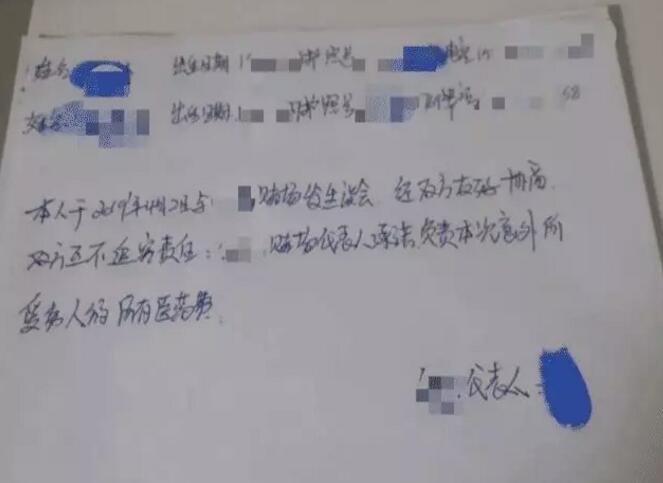 姓名 出生日期 护照号
姓名 出生日期 护照号 58
本人于2019年4月2日与 赌场发生误会 经双方友好协商
双方互不追究责任: 赌场代表人承诺负责本次意外所
受伤人的所有医药费
代表人: